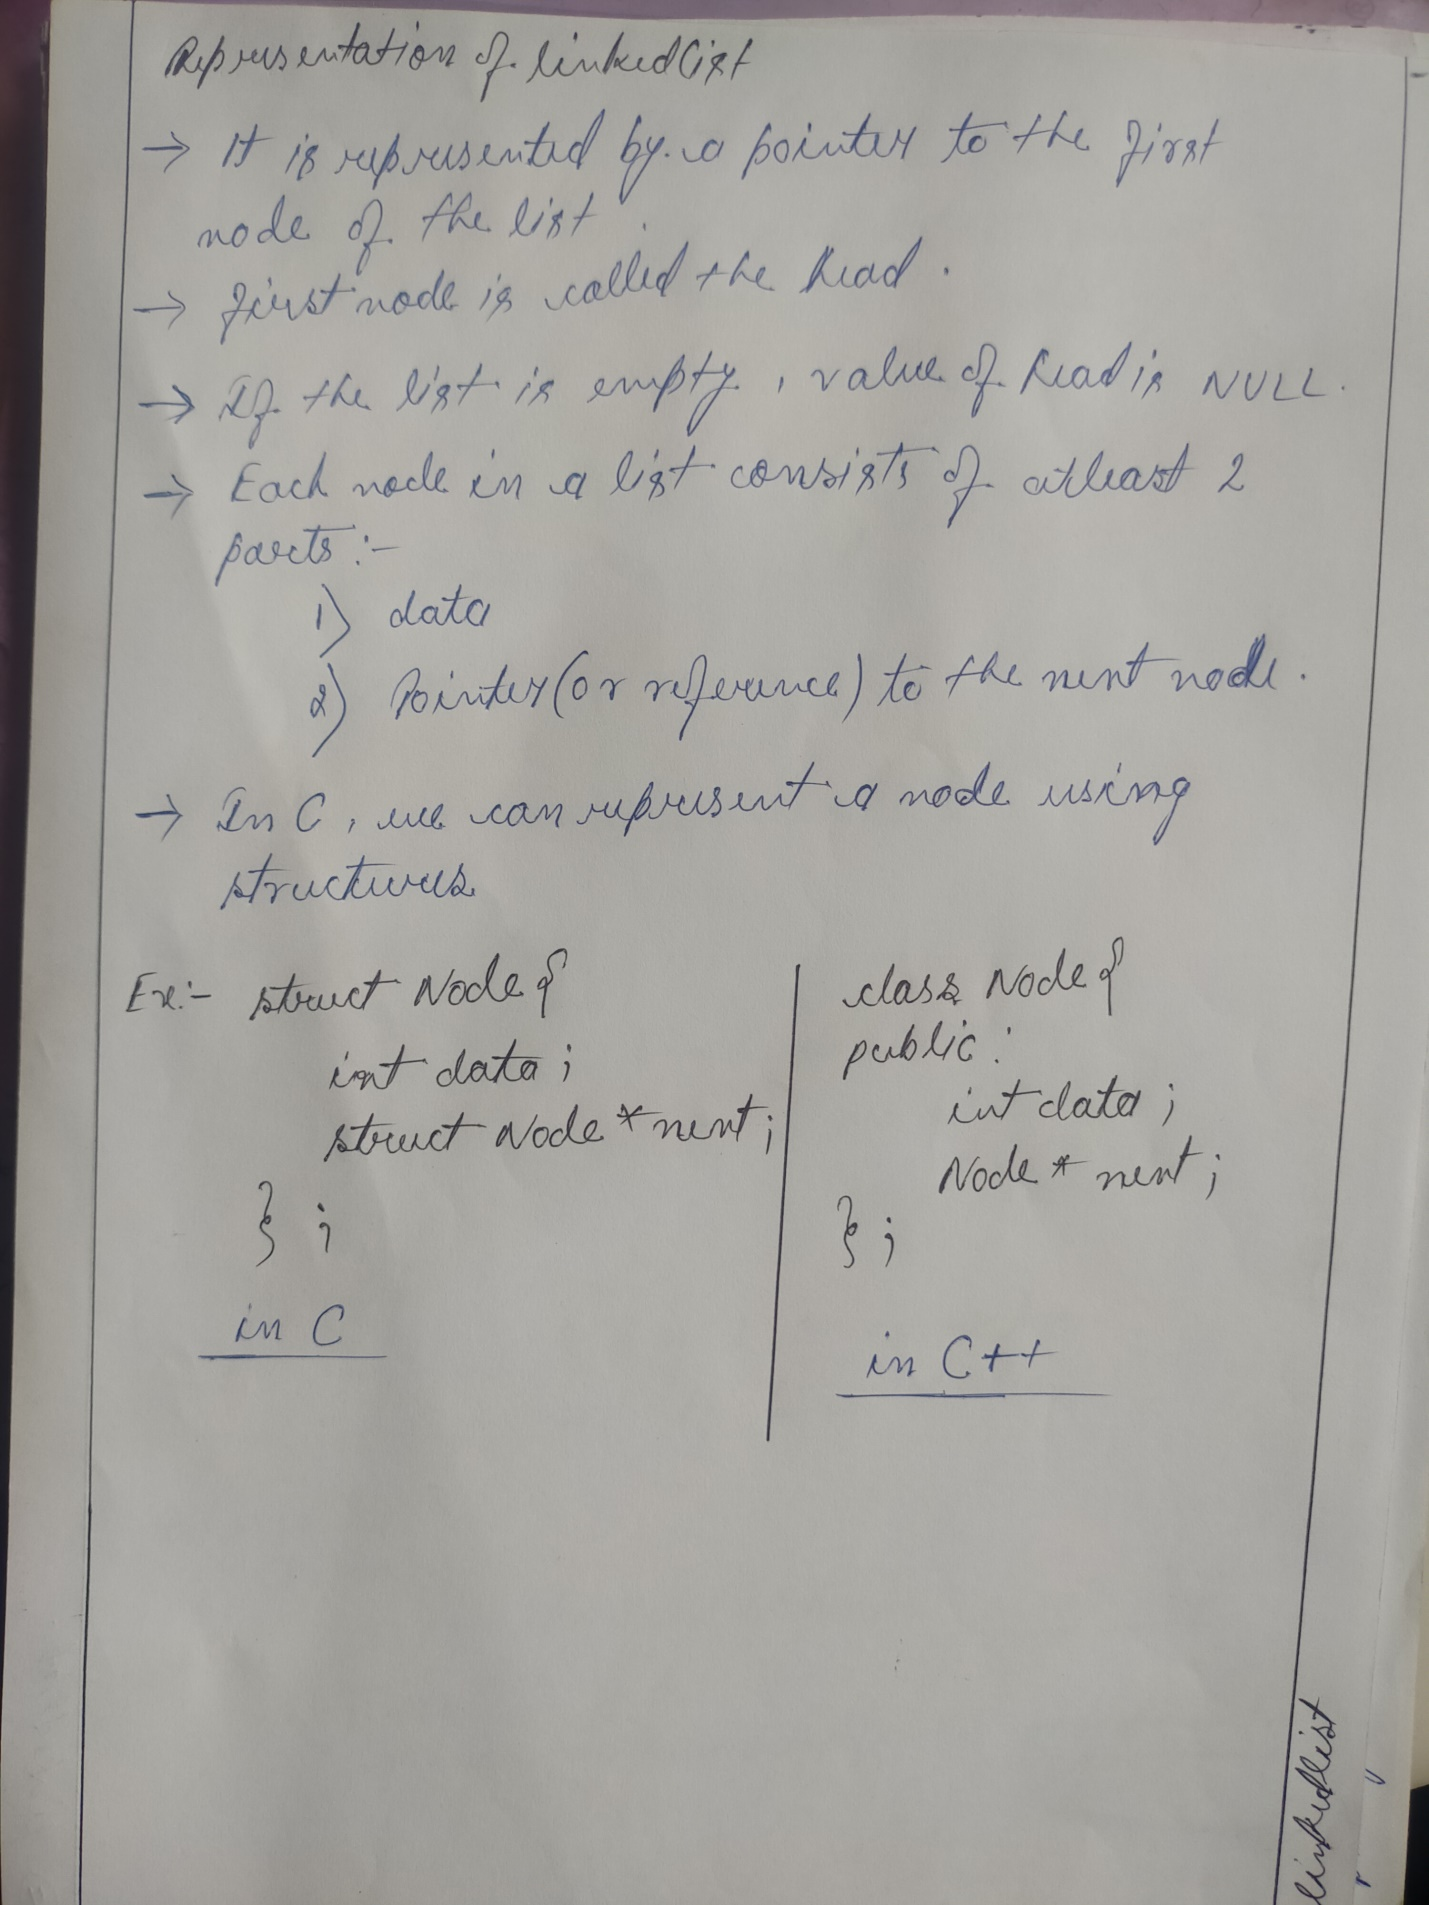 Representation of linkedlist
→ It is represented by a pointer to the first
node of the list.
→ First node is called the head.
→ If the list is empty, value of head is NULL.
→ Each node in a list consists of atleast 2
parts :-
1) data
2) Pointer (or reference) to the next node.
→ In C, we can represent a node using
structures
Ex:- struct Node {
int data ;
struct Node * next ;
} ;
in C
class Node {
public :
int data ;
Node * next ;
} ;
in C++
linkedlist